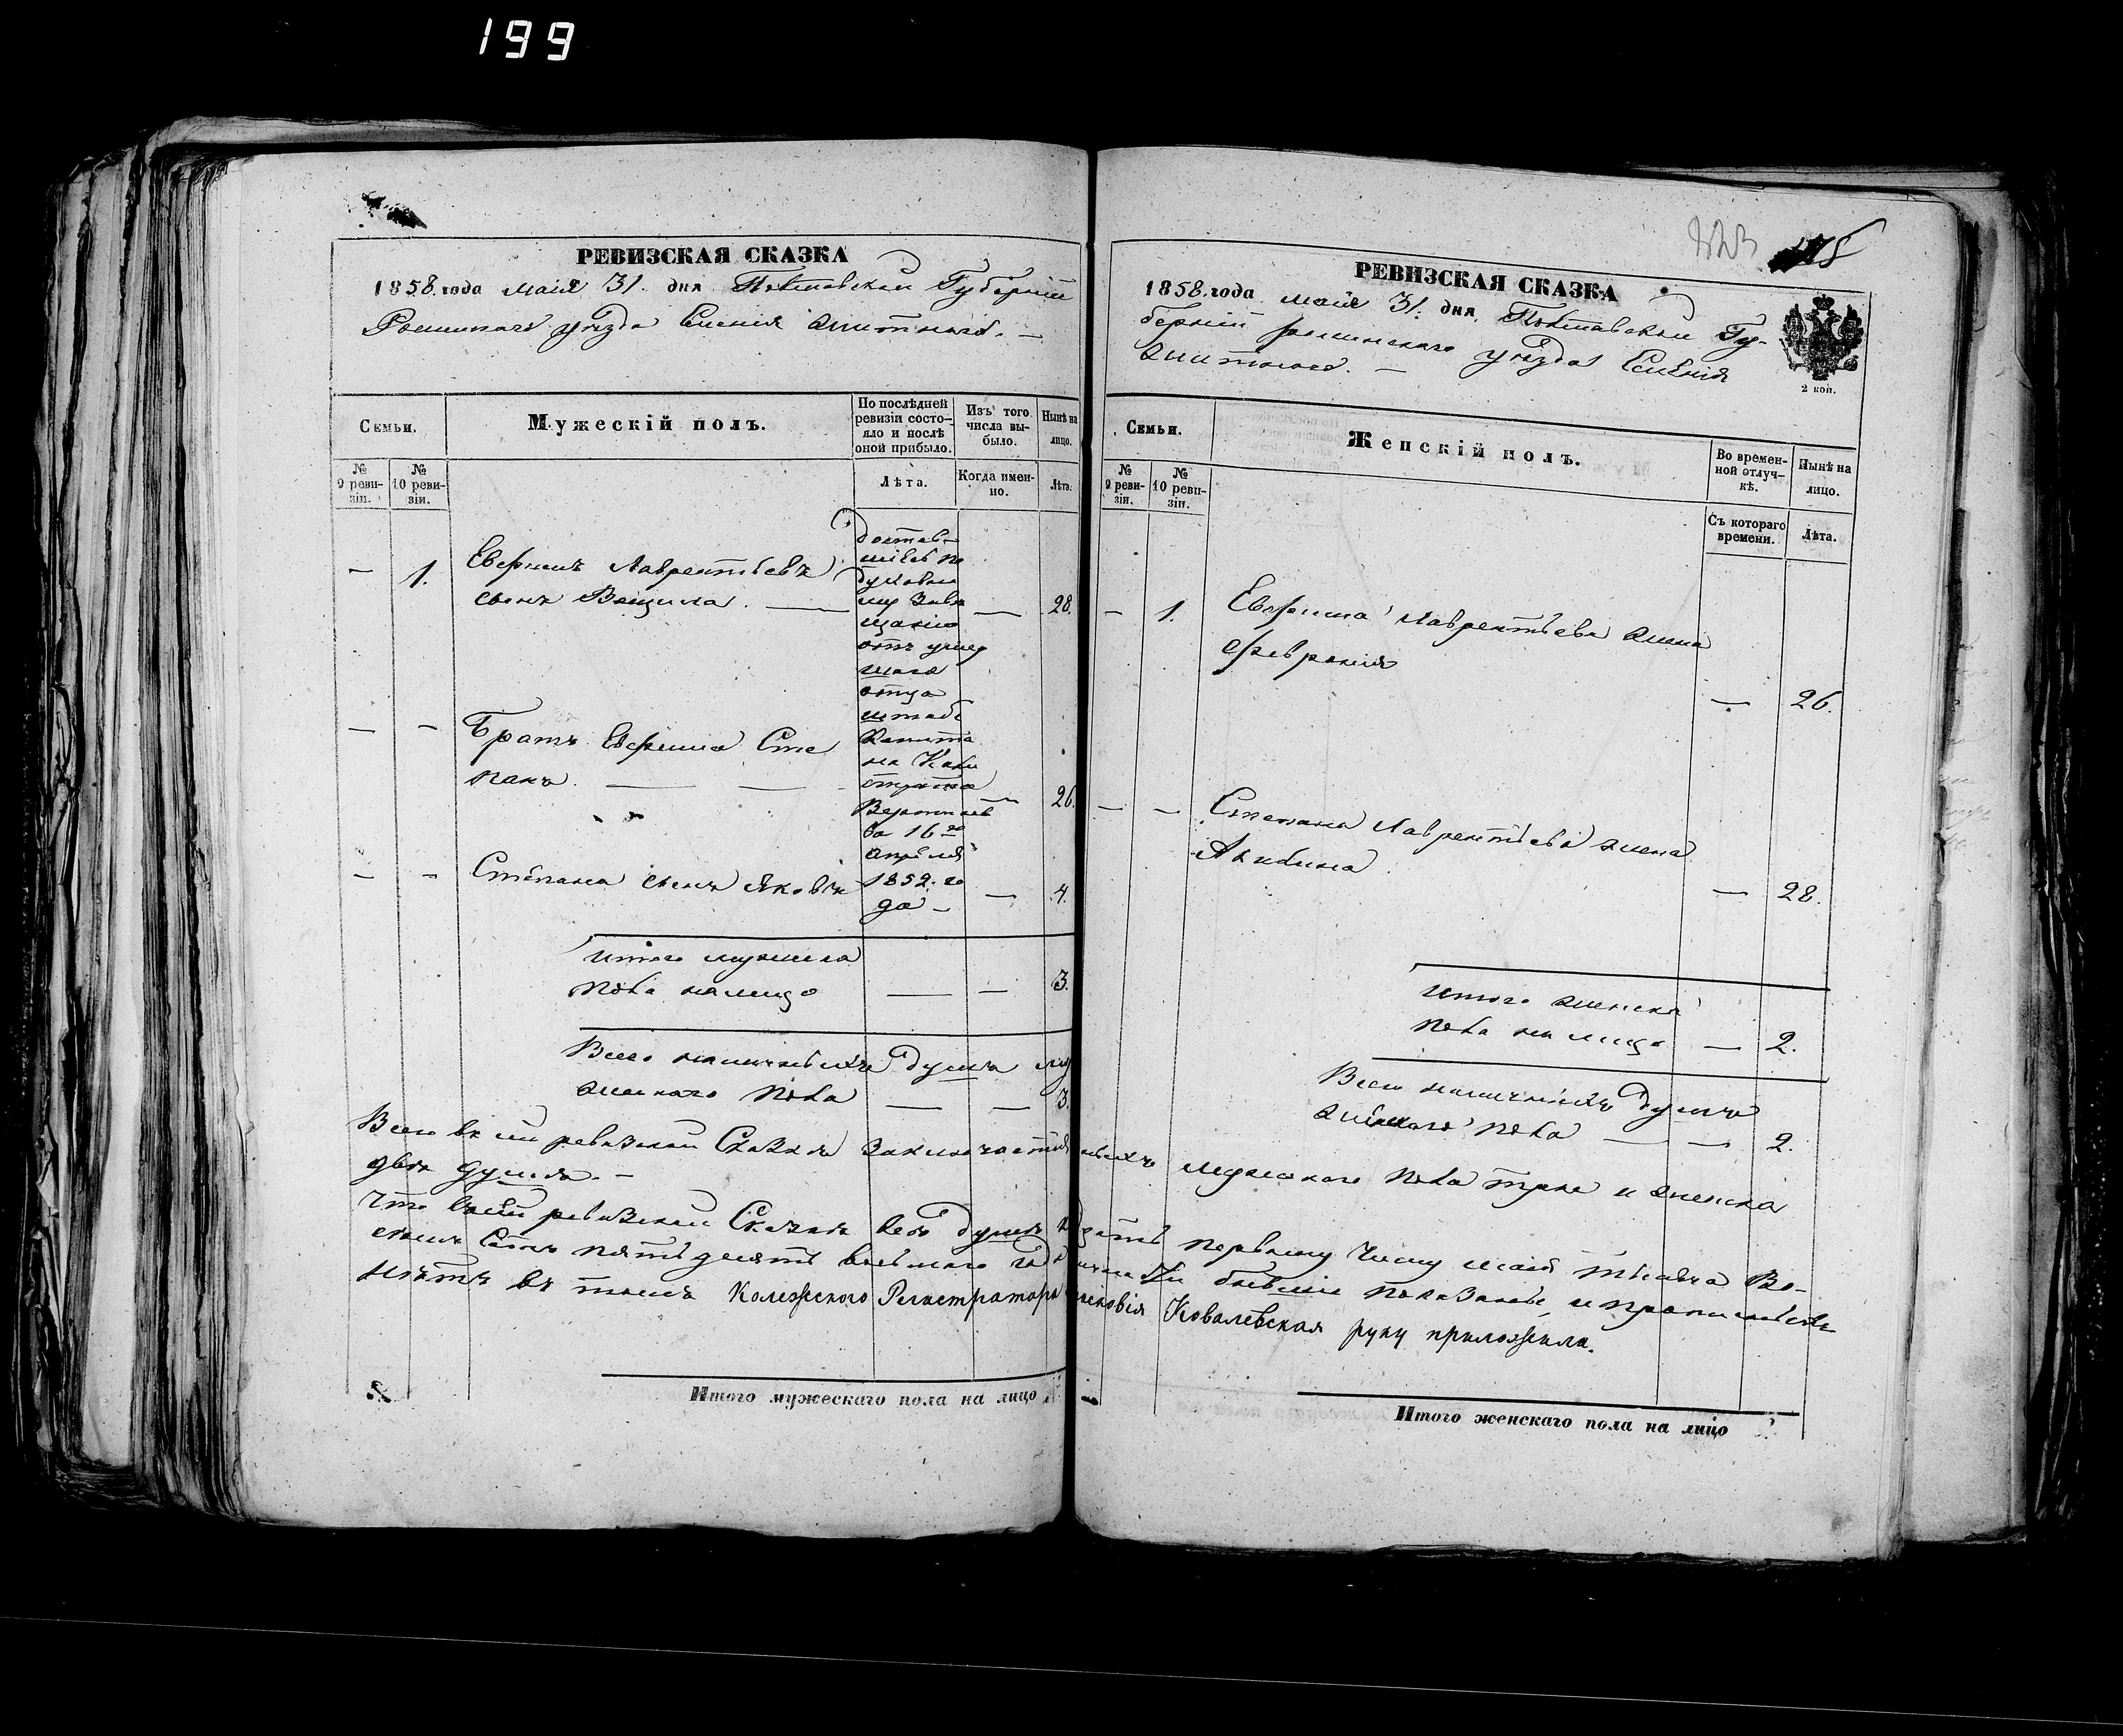 199
РЕВИЗСКАЯ СКАЗКА
1858. года маия 31. дня Полтавской Губерніи
Роменскаго уезда Селенія
Семьи.
Мужескій полъ.
По послѣдней ревизіи состо-
яло и послѣ
оной прибыло.
Изъ того
числа вы-
было.
Нынѣ на
лицо.
№
9 реви-
зіи.
№
10 реви-
зіи.
Лѣта.
Когда имен-
но.
Лѣта.
— 1. Евфимъ Лаврентьевъ
сынъ — — 28.
достав-
шіеся по
духовно
му завѣ
щанію
отъ умер
шаго
отца
штабъ
Капита
на
16го
апреля
1852. го
да —
— — Братъ Евфима Сте
панъ. — — — 26.
— — Степана сынъ Яковъ — 4.
Итого мужеска
пола налицо — — 3.
Всего наличныхъ душъ му
жескаго пола — — 3.
РЕВИЗСКАЯ СКАЗКА
1858. года маия 31. дня, Полтавской Гу-
берніи роменскаго уезда Селенія
2 коп.
Семьи.
Женскій полъ.
Во времен-
ной отлуч-
кѣ.
Нынѣ на
лицо.
№
9 реви-
зіи.
№
10 реви-
зіи.
Съ котораго
времени.
Лѣта.
— 1. Евфима Лаврентьева жена
Февронія
— 26.
— — Степана Лаврентьева жена
Акилина
— 28.
Итого женска
пола на лицо — 2.
Всего наличныхъ душъ
женскаго пола — — 2.
Всего въ сей ревизской Сказкѣ заключается мужскаго пола трое и женска
две души. —
что въ сей ревизской Сказкѣ все душъ первому числу маия тысяча Во-
семъ Сотъ пятьдесятъ восьмого года бывшіе показаны, и прописныхъ
нѣтъ въ томъ Колежского Регистратора Ковалевская руку приложила.
Итого мужескаго пола на лицо
Итого женскаго пола на лицо